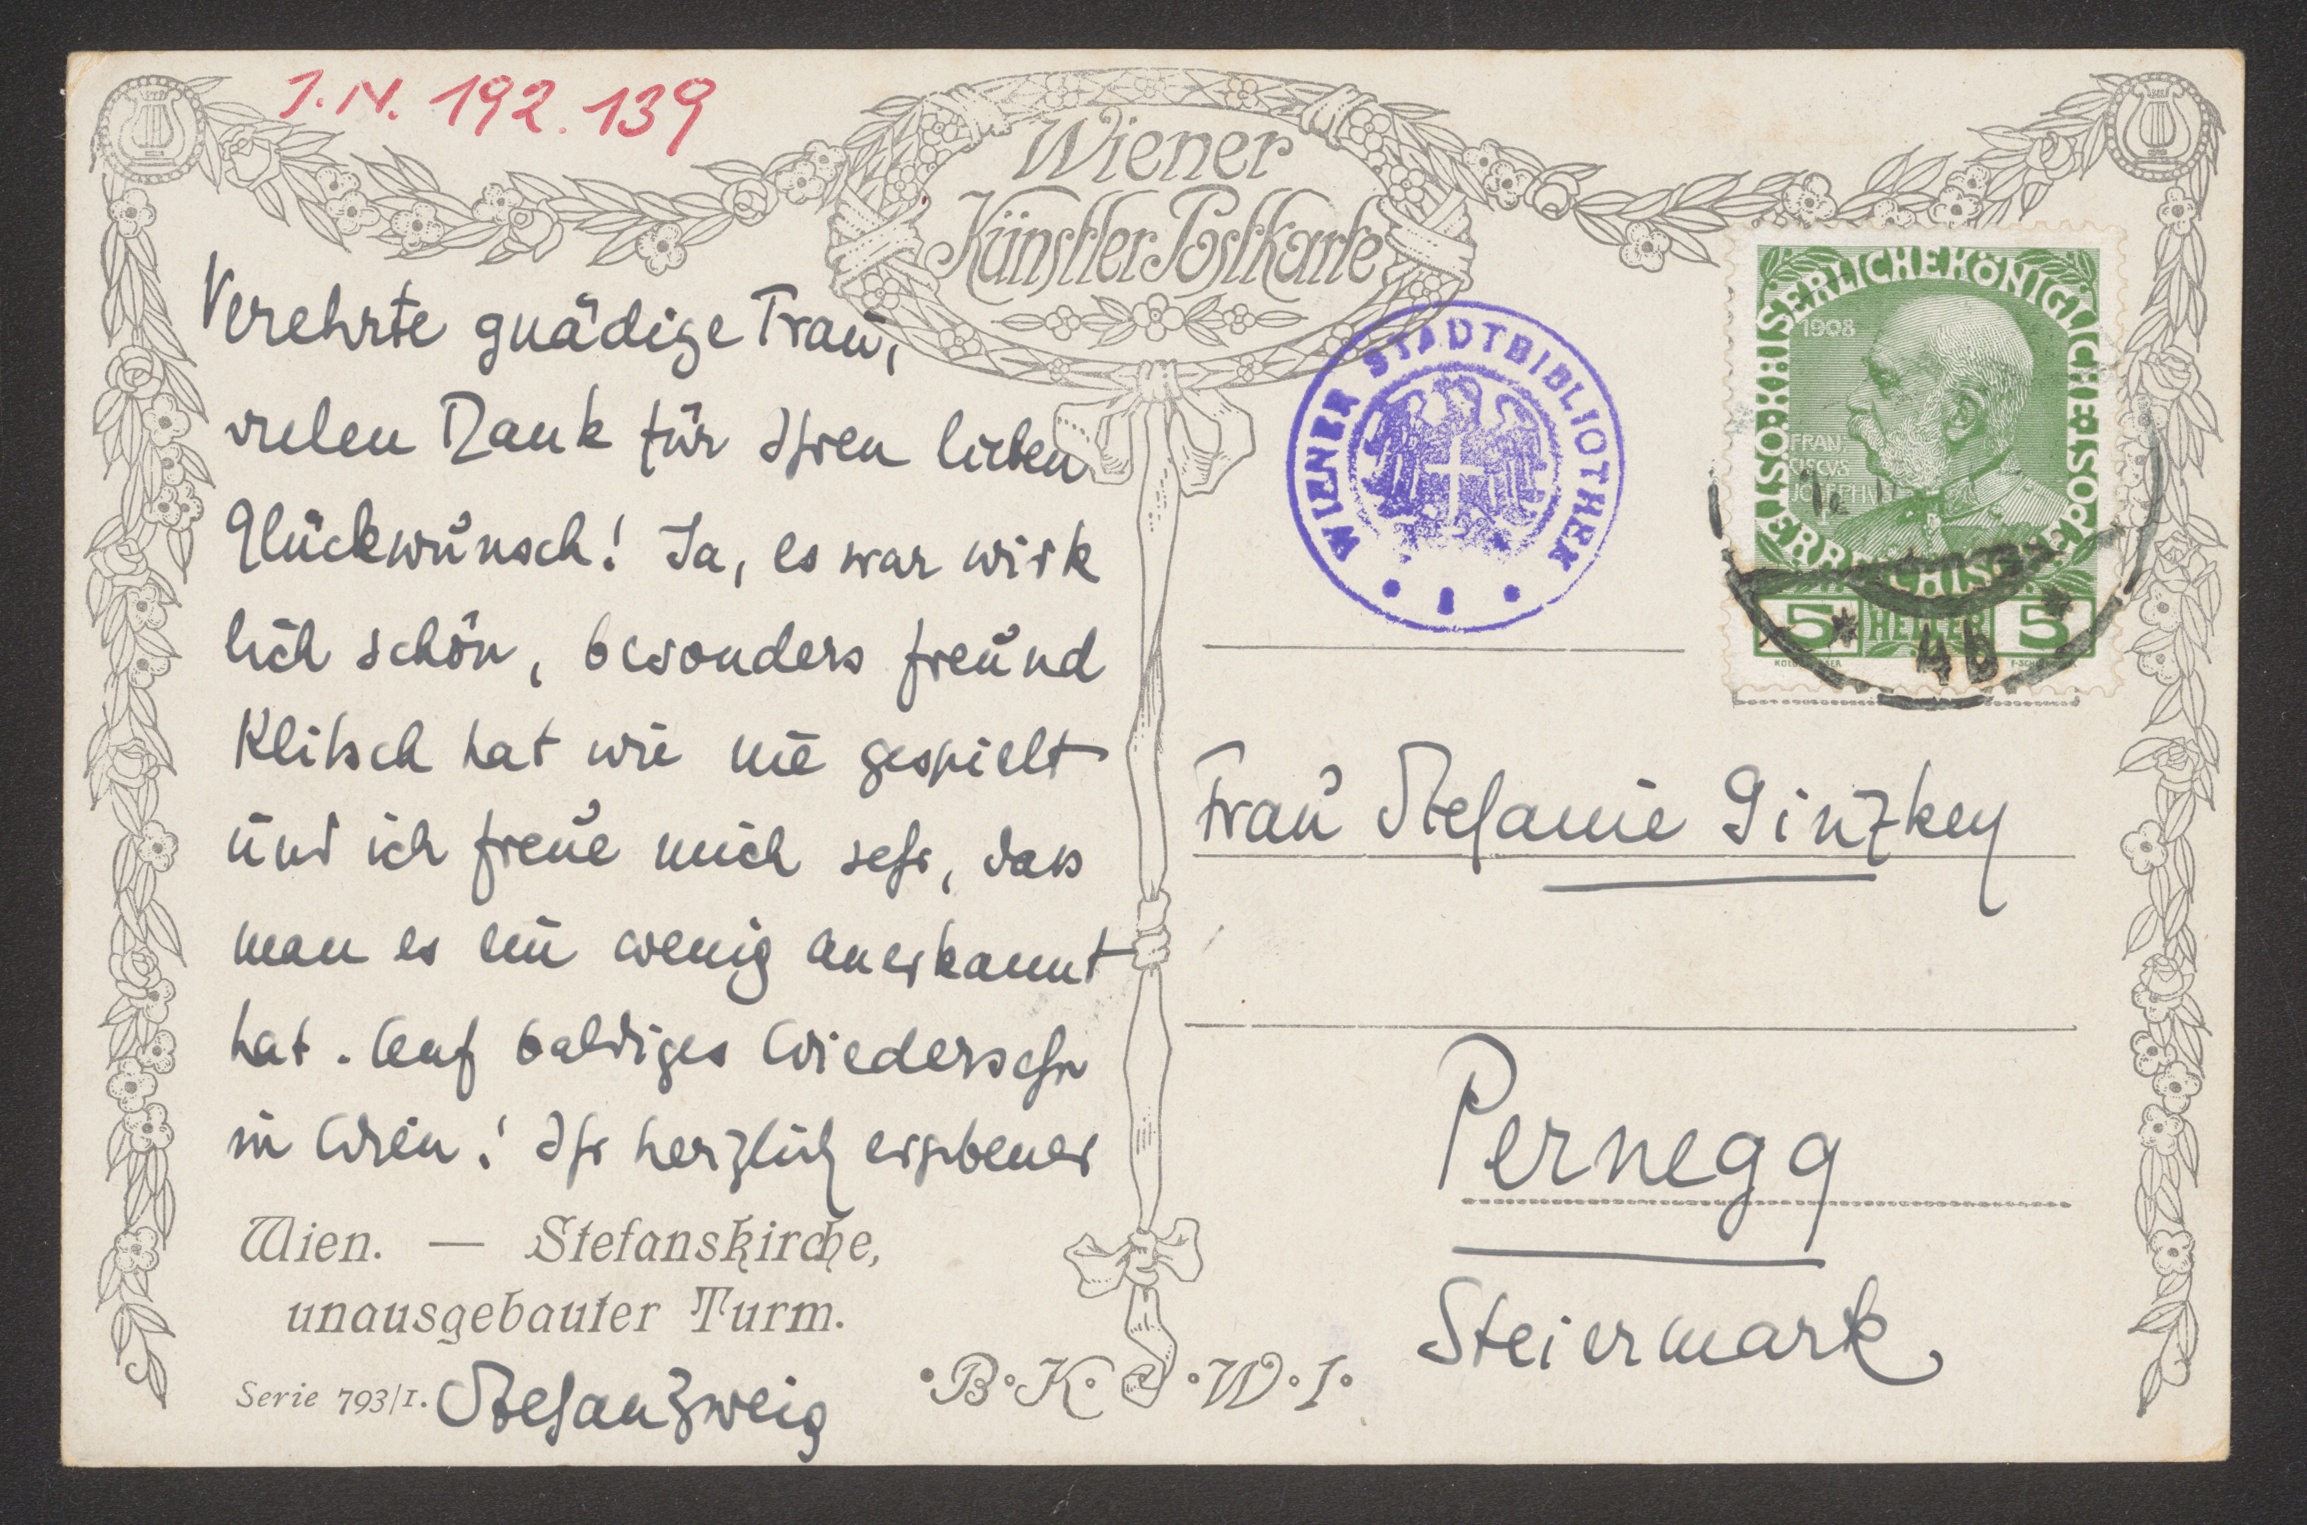 J.N. 192.139
Wiener
Künstler Postkarte
Verehrte gnädige Frau,
vielen Dank für Ihren lieben
Glückwunsch! Ja, es war wirk
lich schön, besonders freund
Klitsch hat wie nie gespielt
und ich freue mich sehr, dass
man es ein wenig anerkannt
hat. Auf baldiges Wiedersehn
in Wien! Ihr herzlich ergebener
Wien. — Stefanskirche,
unausgebauter Turm.
Serie 793/I.
Stefan Zweig
·B·K·W·I·
WIENER STADTBIBLIOTHEK
KAISERLICHE KÖNIGLICHE ÖSTERREICHISCHE POST
1908
FRAN
CISCVS
JOSEPHVS
I
5 HELLER 5
4b
Frau Stefanie Ginzkey
Pernegg
Steiermark